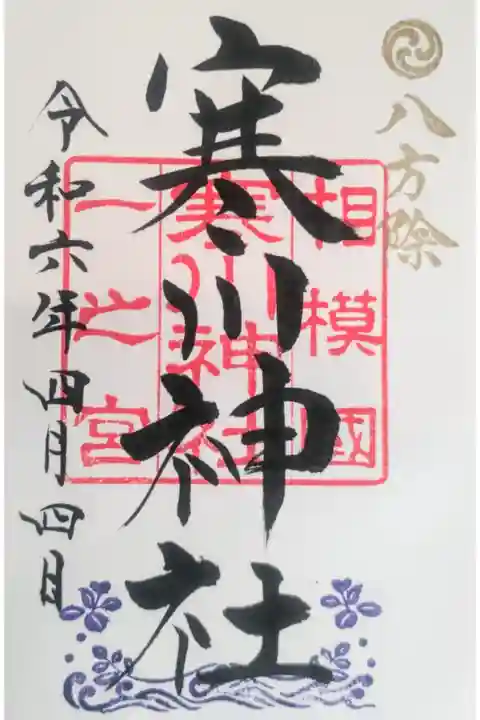 八方除
相模國
寒川神社
一之宮
寒川神社
令和六年四月四日